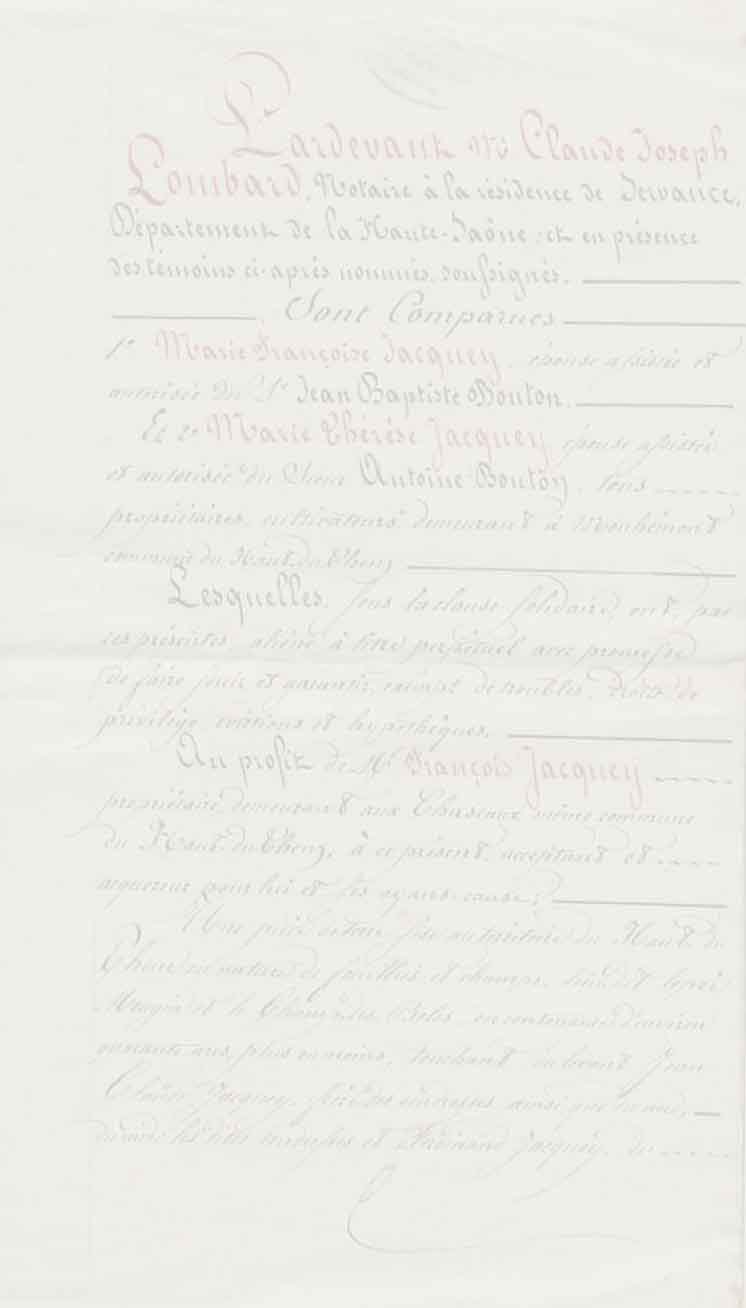 Pardevant Me Claude Joseph
Lombard, Notaire à la résidence de Servance,
Département de la Haute-Saône; et en présence
des témoins ci-après nommés, soussignés.
Sont Comparues
1° Marie Françoise Jacquey, épouse assistée et
autorisée du Sr Jean Baptiste Bouton,
Et 2° Marie Thérèse Jacquey, épouse assistée
et autorisée du Sieur Antoine Bouton, tous
propriétaires, cultivateurs demeurant à
commune du Haut du Them,
Lesquelles, sous la clause solidaire, ont, par
ces présentes, aliéné à titre perpétuel avec promesse
de faire jouir et garantir, exempt de troubles, dettes, de
privilège, évictions et hypothèques,
Au profit de Mr François Jacquey
propriétaire, demeurant aux même commune
du Haut du Them, à ce présent, acceptant et
acquéreur pour lui et ses ayans-cause;
Une pièce de terre sise au territoire du Haut du
Them en nature de et champs, lieudit
et le des en contenance d'environ
ares, plus ou moins, touchant au levant Jean
Jacquey, ainsi que au
et Jacquey, du